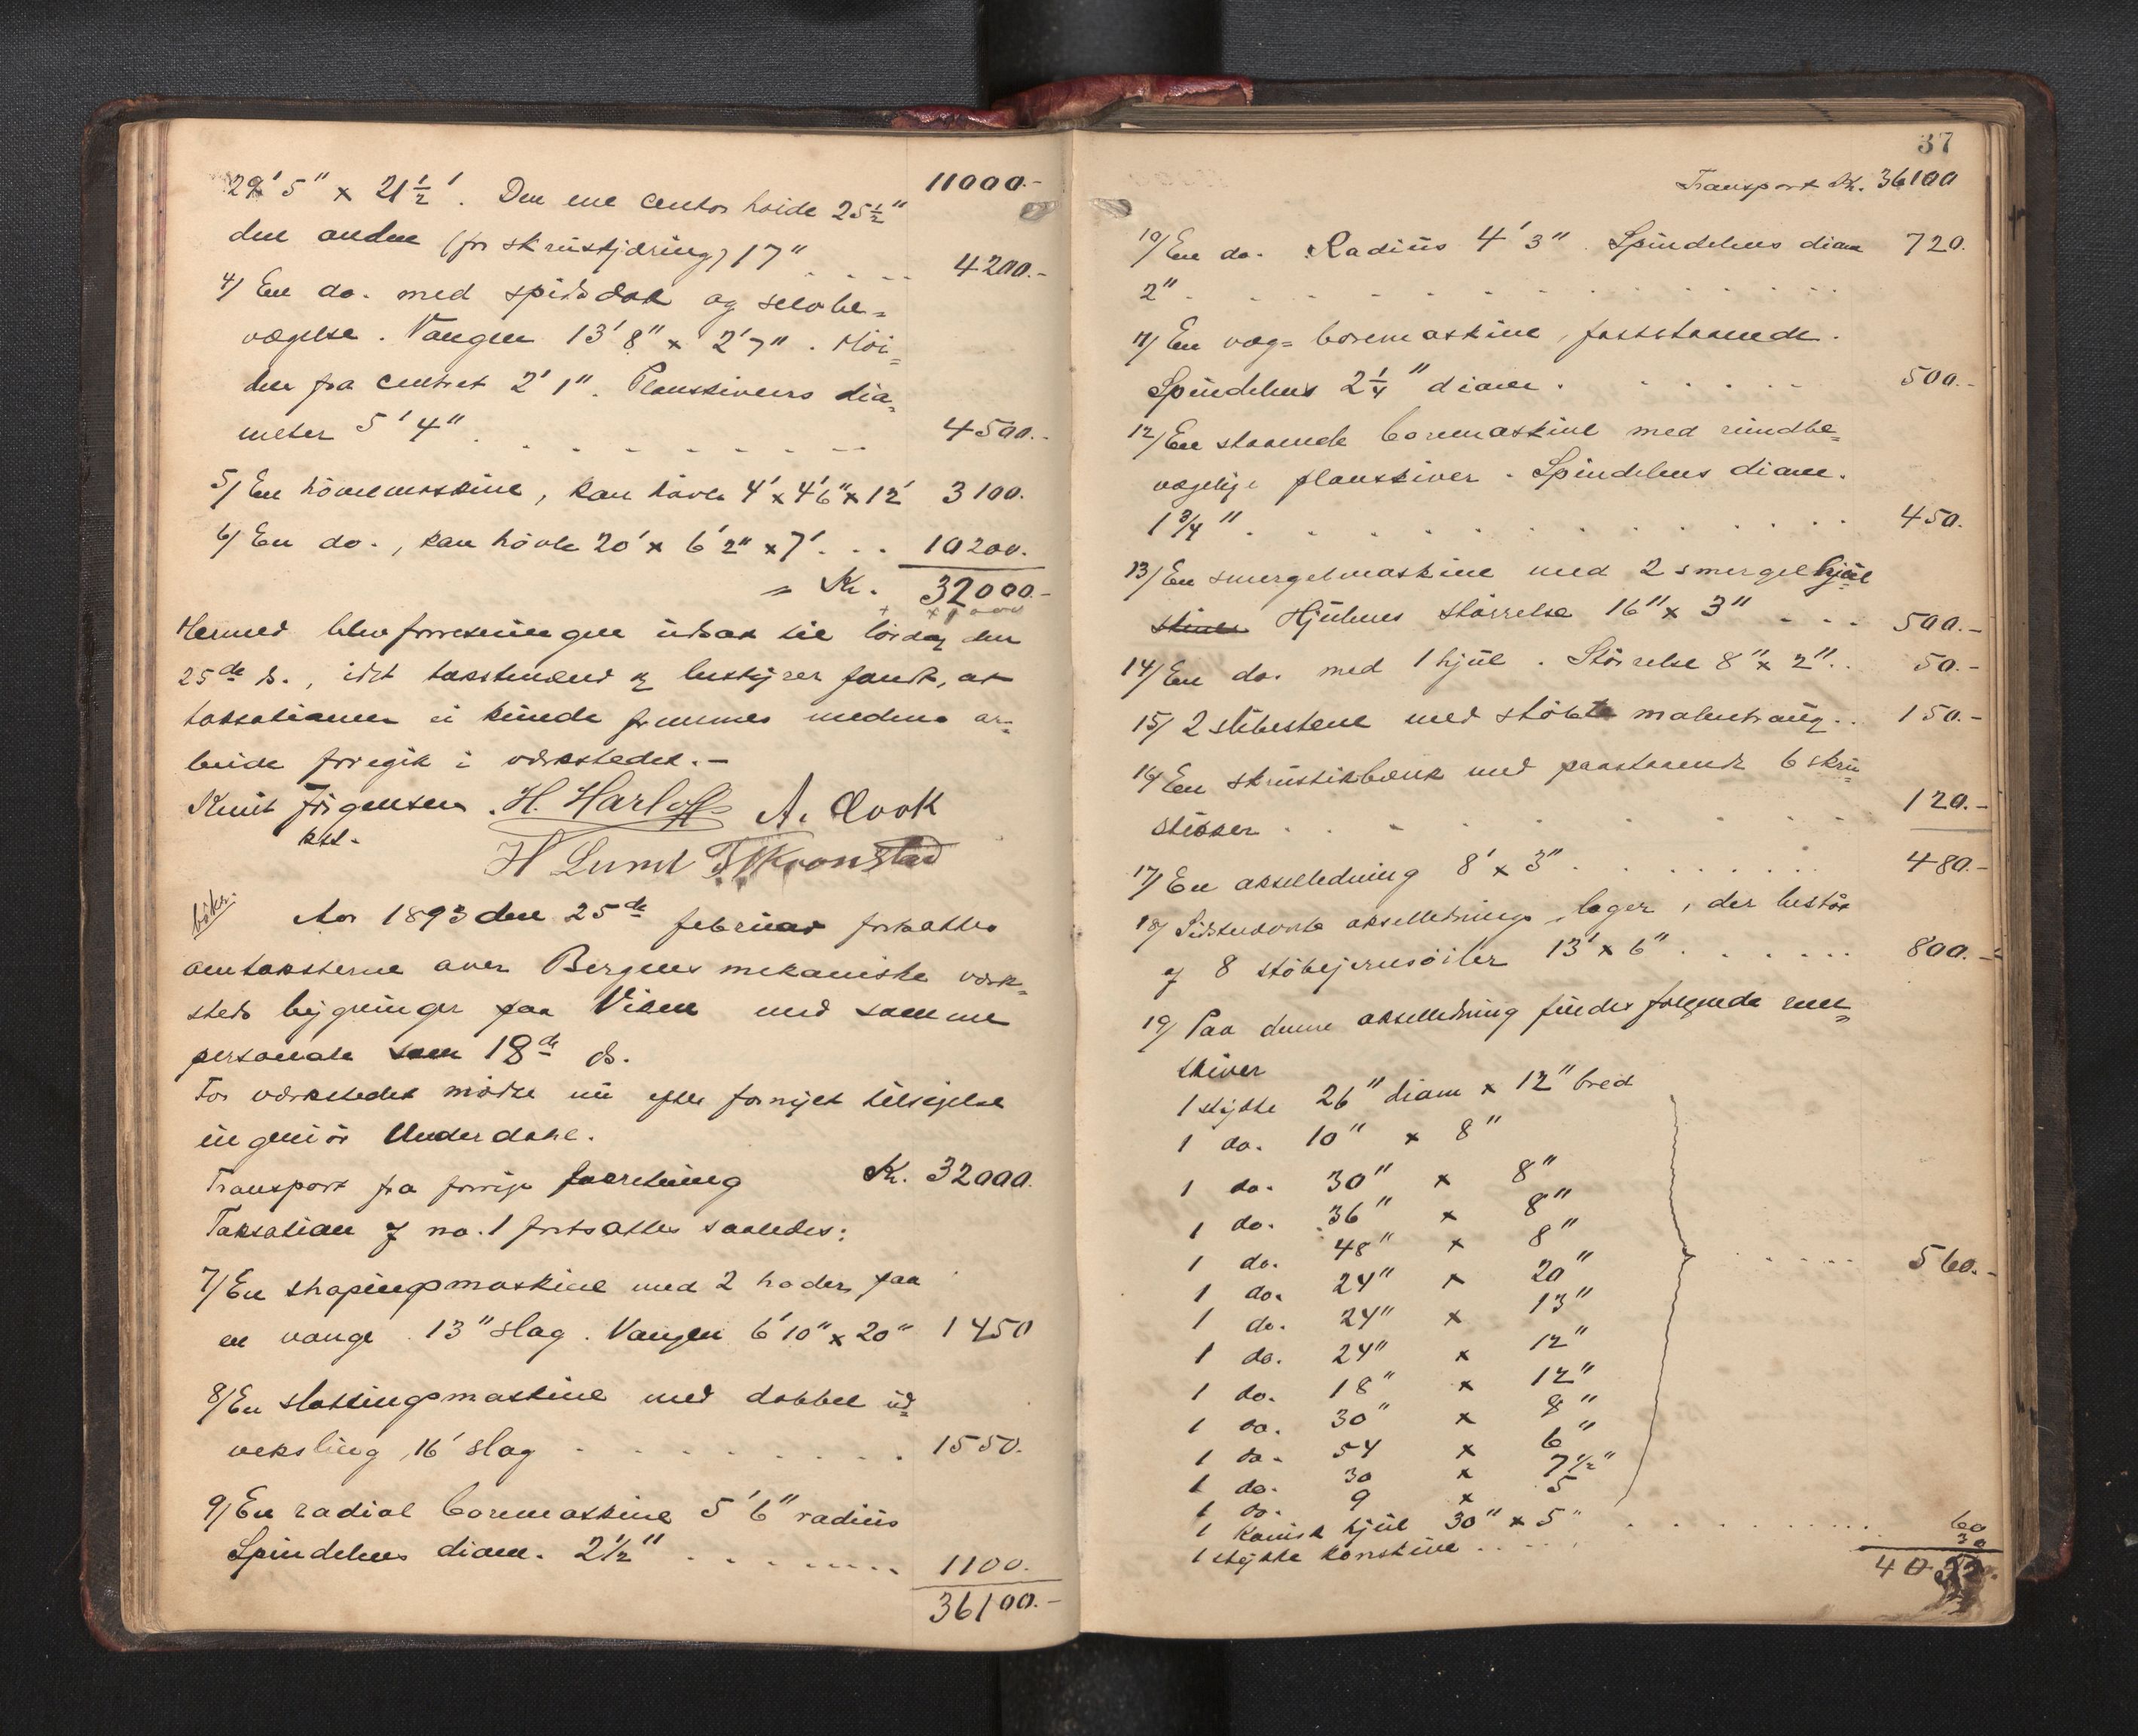 29' 5" x 21½'. Den ene centerhöide 25½" 11000.-
den anden (for skrueskjæring) 17" . . . . 4200.-
4) En do. med spidsdok og selvbe=
vægelse. Vangen 13' 8" x 2' 7". Höi=
den fra centret 2' 1". Planskivens dia=
meter 5' 4" . . . . . . . . 4500.-
5) En hövlemaskine, kan hövle 4' x 4'6" x 12' 3100.
6) En do., kan hövle 20' x 6' 2" x 7' . . . 10200.
= Kr. 32000.-
Hermed blev forretningen udsat til lördag den
25de ds., idet takstmænd og bestyrer fandt, at
taksationen ei kunde fremmes medens ar=
beide foregik i værkstedet.-
Knut Jörgensen H. Harloff A. Cook
kst.
H Lund T. Kronstad
böker.
Aar 1893 den 25de februar fortsattes
omtaksterne over Bergens mekaniske værk=
steds bygninger paa Viken med samme
personale som 18de ds.
For værkstedet mödte nu efter fornyet tilsigelse
ingeniör Underdahl.
Transport fra forrige forretning Kr. 32000.
Taksation af no. 1 fortsattes saaledes:
7) En shapingmaskine med 2 hoder paa
en vange. 13" slag. Vangen 6' 10" x 20" 1450
8) En slottingsmaskine med dobbel ud=
veksling, 16' slag . . . . . . . . 1550.
9) En radial boremaskine 5' 6" radius
Spindelens diam. 2½" . . . . . . . 1100.
36100.-
37
Transport Kr. 36100
10) En do. Radius 4' 3". Spindelens diam 720.
2" . . . . . . . . . . . . . .
11) En væg=boremaskine, faststaaende.
Spindelens 2¼" diam. . . . . . . 500.-
12) En staaende boremaskine med rundbe=
vægelige planskiver. Spindelens diam.
1¾" . . . . . . . . . . . . 450.
13) En smergelmaskine med 2 smergelhjul
skiver Hjulenes störrelse 16" x 3" . . . 500.-
14) En do. med 1 hjul. Störrelse 8" x 2". . 50.-
15) 2 slibestene med stöbte malmtraug. . 150.-
16) En skrustikbænk med paastaaende 6 skru=
stikker . . . . . . . . . . 120.-
17) En akselledning 8' x 3" . . . . . . . . 480.-
18) Sidstnævnte aksellednings lager, der bestaar
af 8 stöbejernsöiler 13' x 6" . . . . . . 800.-
19) Paa denne akselledning findes fölgende rem=
skiver
1 stykke 26" diam x 12" bred
1 do. 10" x 8"
1 do. 30" x 8"
1 do. 36" x 8"
1 do. 48" x 8"
1 do. 24" x 20" . . . . . 560.-
1 do. 24" x 13"
1 do. 24" x 12"
1 do. 18" x 12"
1 do. 30" x 8"
1 do. 54 x 6"
1 do. 30 x 7½"
1 do. 9 x 5
1 konisk hjul 30" x 5" . . . . . . . . . 60
1 stykke konskive . . . . . 30